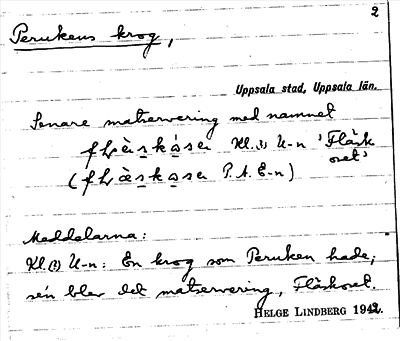 2
Perukens krog,
Uppsala stad, Uppsala län.
Senare matservering med namnet
Kl. U-n 'Fläsk
oset'
P. A. E-n)
Meddelarna:
Kl. U-n: En krog som Peruken hade,
sen blev det matservering, Fläskoset.
HELGE LINDBERG 1942.